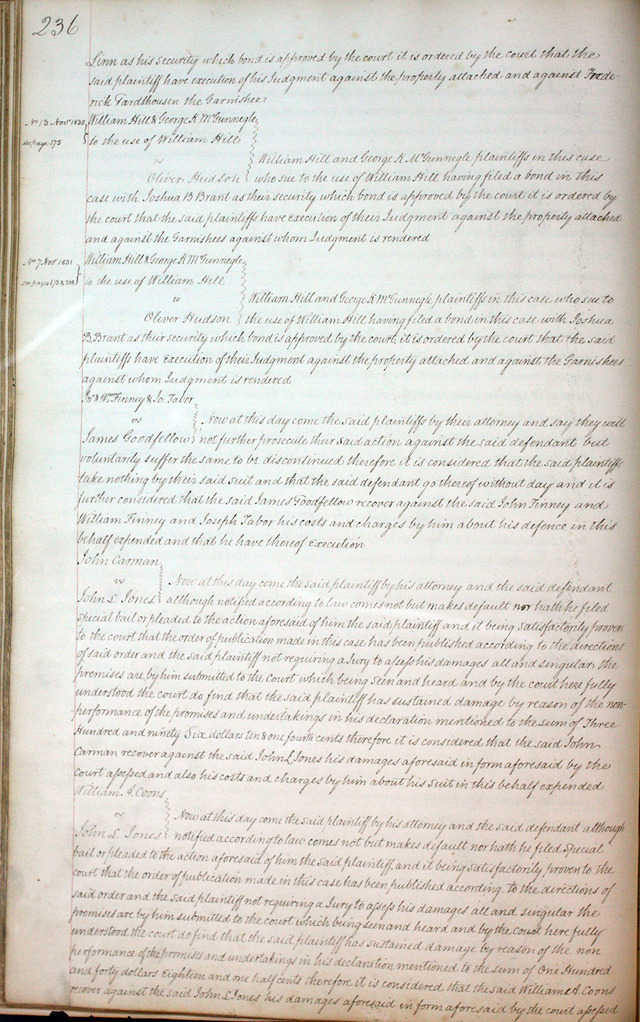 236
Linn as his security which bond is approved by the court it is ordered by the court that the
said plaintiff have execution of his Judgment against the property attached and against Frede-
rick the Garnishee
No 13 Nov 1830 William Hill & George K McGunnegle
see page 175 to the use of William Hill
vs William Hill and George K McGunnegle plaintiffs in this case
Oliver Hudson who sue to the use of William Hill having filed a bond in this
case with Joshua B Brant as their security which bond is approved by the court it is ordered by
the court that the said plaintiffs have execution of their Judgment against the property attached
and against the Garnishees against whom Judgment is rendered
No 7 Nov 1831 William Hill & George K McGunnegle
see page to the use of William Hill
vs William Hill and George K McGunnegle plaintiffs in this case who sue to
Oliver Hudson the use of William Hill having filed a bond in this case with Joshua
B. Brant as their security which bond is approved by the court, it is ordered by the court that the said
plaintiffs have execution of their Judgment against the property attached and against the Garnishees
against whom Judgment is rendered
Jno & Wm Finney & Jo. Tabor
vs Now at this day come the said plaintiffs by their attorney and say they will
James Goodfellow not further prosecute their said action against the said defendant but
voluntarily suffer the same to be discontinued therefore it is considered that the said plaintiffs
take nothing by their said suit and that the said defendant go thereof without day and it is
further considered that the said James Goodfellow recover against the said John Finney and
William Finney and Joseph Tabor his costs and charges by him about his defence in this
behalf expended and that he have thereof execution
John Carman
vs Now at this day come the said plaintiff by his attorney and the said defendant
John L Jones although notified according to law comes not but makes default nor hath he filed
special bail or pleaded to the action aforesaid of him the said plaintiff and it being satisfactorily proven
to the court that the order of publication made in this case has been published according to the directions
of said order and the said plaintiff not requiring a Jury to assess his damages all and singular the
premises are by him submitted to the court which being seen and heard and by the court here fully
understood the court do find that the said plaintiff has sustained damage by reason of the non-
performance of the promises and undertakings in his declaration mentioned to the sum of Three
Hundred and ninety Six dollars ten & one fourth cents therefore it is considered that the said John
Carman recover against the said John L Jones his damages aforesaid in form aforesaid by the
court assessed and also his costs and charges by him about his suit in this behalf expended
William A. Coons
vs Now at this day come the said plaintiff by his attorney and the said defendant although
John L Jones notified according to law comes not but makes default nor hath he filed Special
bail or pleaded to the action aforesaid of him the said plaintiff, and it being satisfactorily proven to the
court that the order of publication made in this case has been published according to the directions of
said order and the said plaintiff not requiring a Jury to assess his damages all and singular the
premises are by him submitted to the court which being seen and heard and by the court here fully
understood the court do find that the said plaintiff has sustained damage by reason of the non
performance of the promises and undertakings in his declaration mentioned to the sum of One Hundred
and forty dollars Eighteen and one half cents therefore it is considered that the said William A. Coons
recover against the said John L Jones his damages aforesaid in form aforesaid by the court assessed